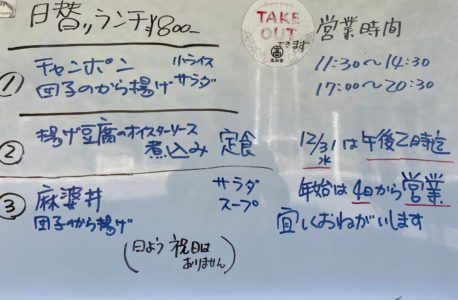 日替ランチ ¥800-
① チャンポン 小ライス
団子のから揚げ サラダ
② 揚げ豆腐のオイスターソース
煮込み 定食
③ 麻婆丼 サラダ
団子のから揚げ スープ
(日よう 祝日は
ありません)
TAKE
OUT
できます
営業時間
11:30〜14:30
17:00〜20:30
12/31 水 は 午後2時迄
年始は 4日から営業
宜しくおねがいします